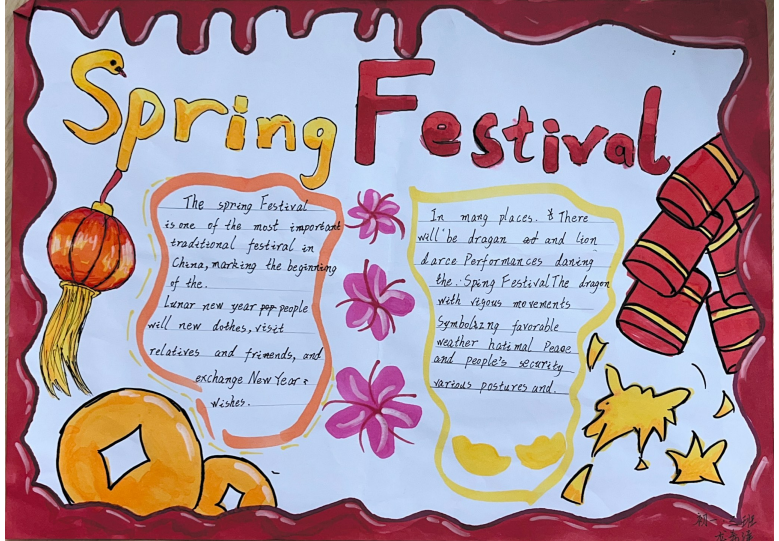 Spring Festival
The spring Festival
is one of the most important
traditional festival in
China, marking the beginning
of the.
Lunar new year people
will new dothes, visit
relatives and frimends, and
exchange New Year's
wishes.
In many places. There
will be dragan and lion
darce Performances daning
the. Sping Festival The dragon
with vigous movements
Symbolizng favorable
weather hatimal Peage
and people's security
various postures and.